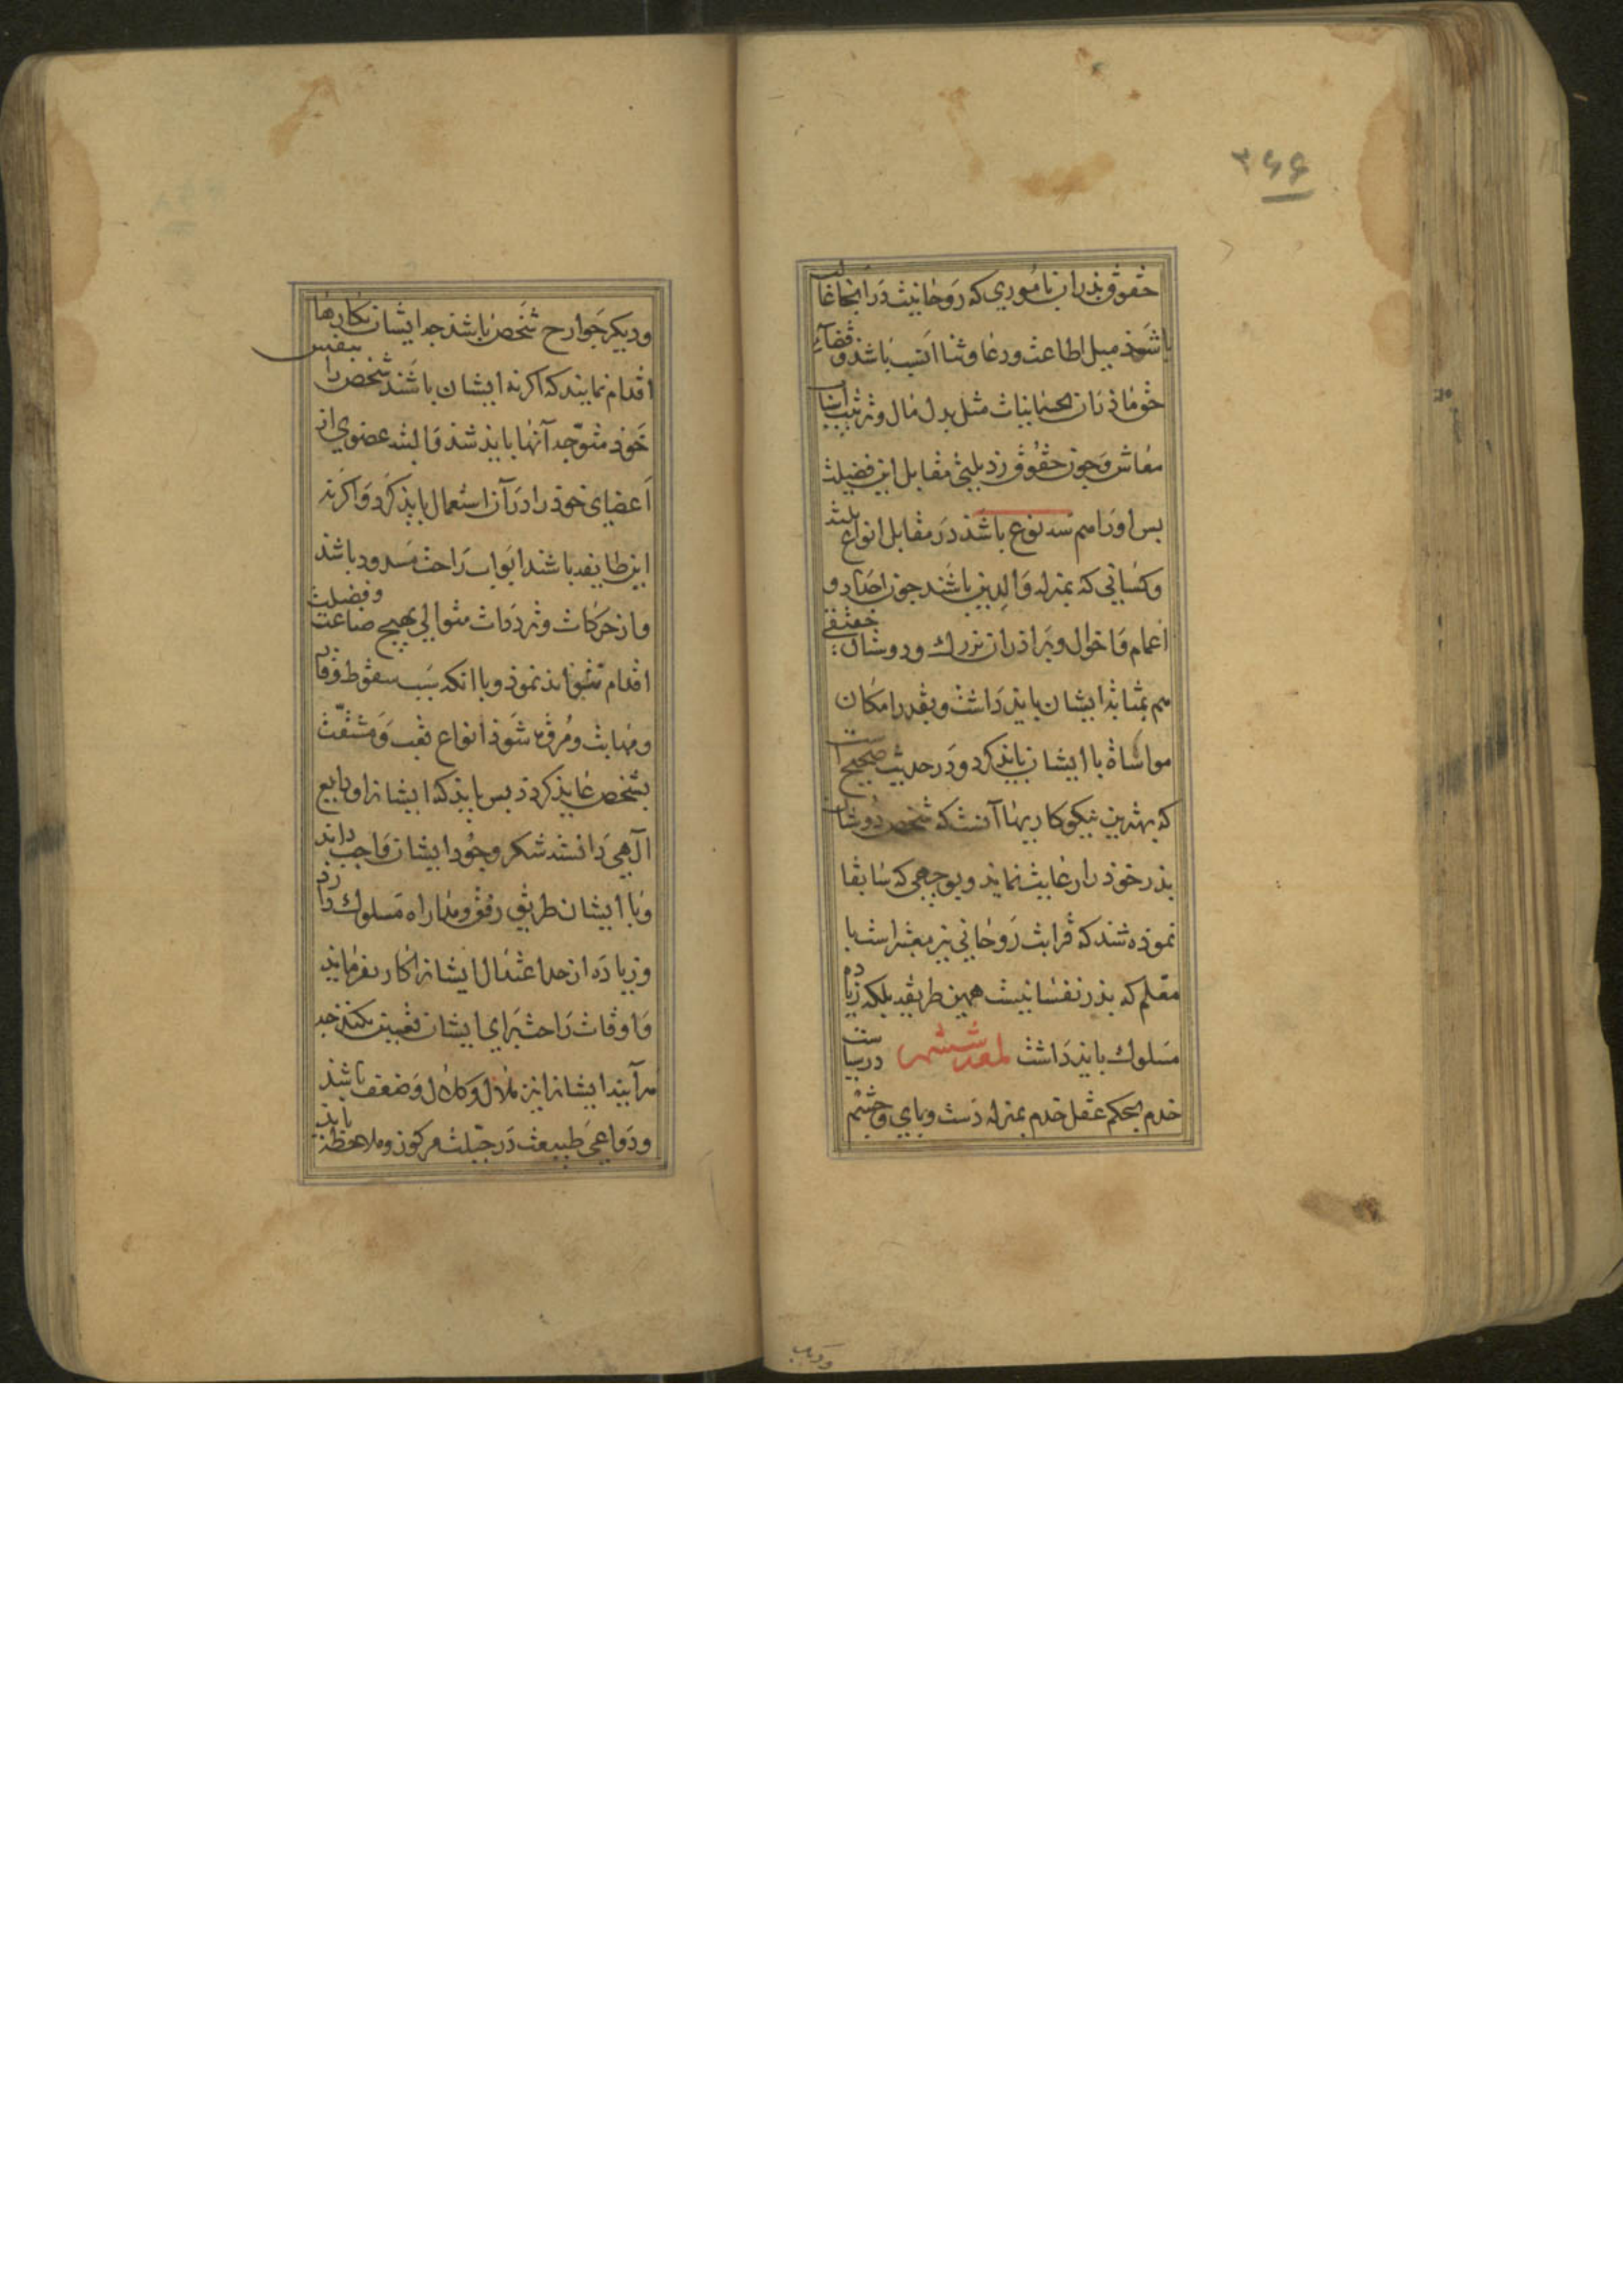 ۳۶۶
حقوق پدران بامُوري که رَوحانیت دَر انجا غالب
باشَد مثل اطاعت ودعا وثنا انسَب باشد وقضاءِ
حقوق ماذران بجسمانیات مثل بذل مال وترتیب اسباب
معاش وَچون حقُوق رذیلتی مقابل این فضیلت
بس اورا هم سه نوع باشَذ دَر مقابل انواع ثلثه
وکسانی که بمنزله وَالِدین باشَند چون اجداد و
اعمام وَاخوال وبَراذران بزرك ودوستان حقیقی
هم بمثابه ایشان بایذ دَاشت وبقدر امکان
مواساة با ایشان بایذ کرد ودَر حدیث صحیح است
که بهترین نیکو کاریها آنست که شخص دُوستان
پذر خوذ را رعایت نمایذ وبوجهی که سَابقا
نموذه شد که قرابت رَوحانی نیز معتبر است با
معلم که پذر نفسانیست همین طریقه بلکه زیاده
مَسلوك بایذ دَاشت لمعه ششم در سیاست
خدم بحکم عقل خدم بمنزله دَست وپاي وچشم
ودیکر جَوارح شخص باشذ چه ایشان بکارها
اقدام نمایند که اکر نه ایشان باشَند شخص را بنفس
خوذ متوّجه آنها بایذ شذ وَالبته عضوي از
اَعضاي خوذ را دَر آن استعمال بایذ کَرد وَاکر نه
این طایفه باشند ابوَاب رَاحت مَسدود باشذ
وَاز حَرَکات وترددات متوالی بهیچ صناعت وفضیلت
اقدام نتوانذ نموذ وبا انکه سَبب سقوط وقار
ومهابت ومُروّة شَوذ انواع تعَب وَمَشقّت
بشخص عایذ کردذ بس بایذ که ایشانرا ودایع
الهی دَانسته شکر وجُود ایشان وَاجب داند
وَبا ایشان طریق رفق ومُداراه مَسلوك دَارد
وزیادَه از حد اعتدال ایشانرا کار نفرماید
وَاوقات رَاحت بَراي ایشان تعیین بکند چه
هرآینه ایشانرا نیز مَلال وَکلال وَضعف باشذ
ودَواعی طبیعت دَر جبلت مرکوز وملاحظه باید